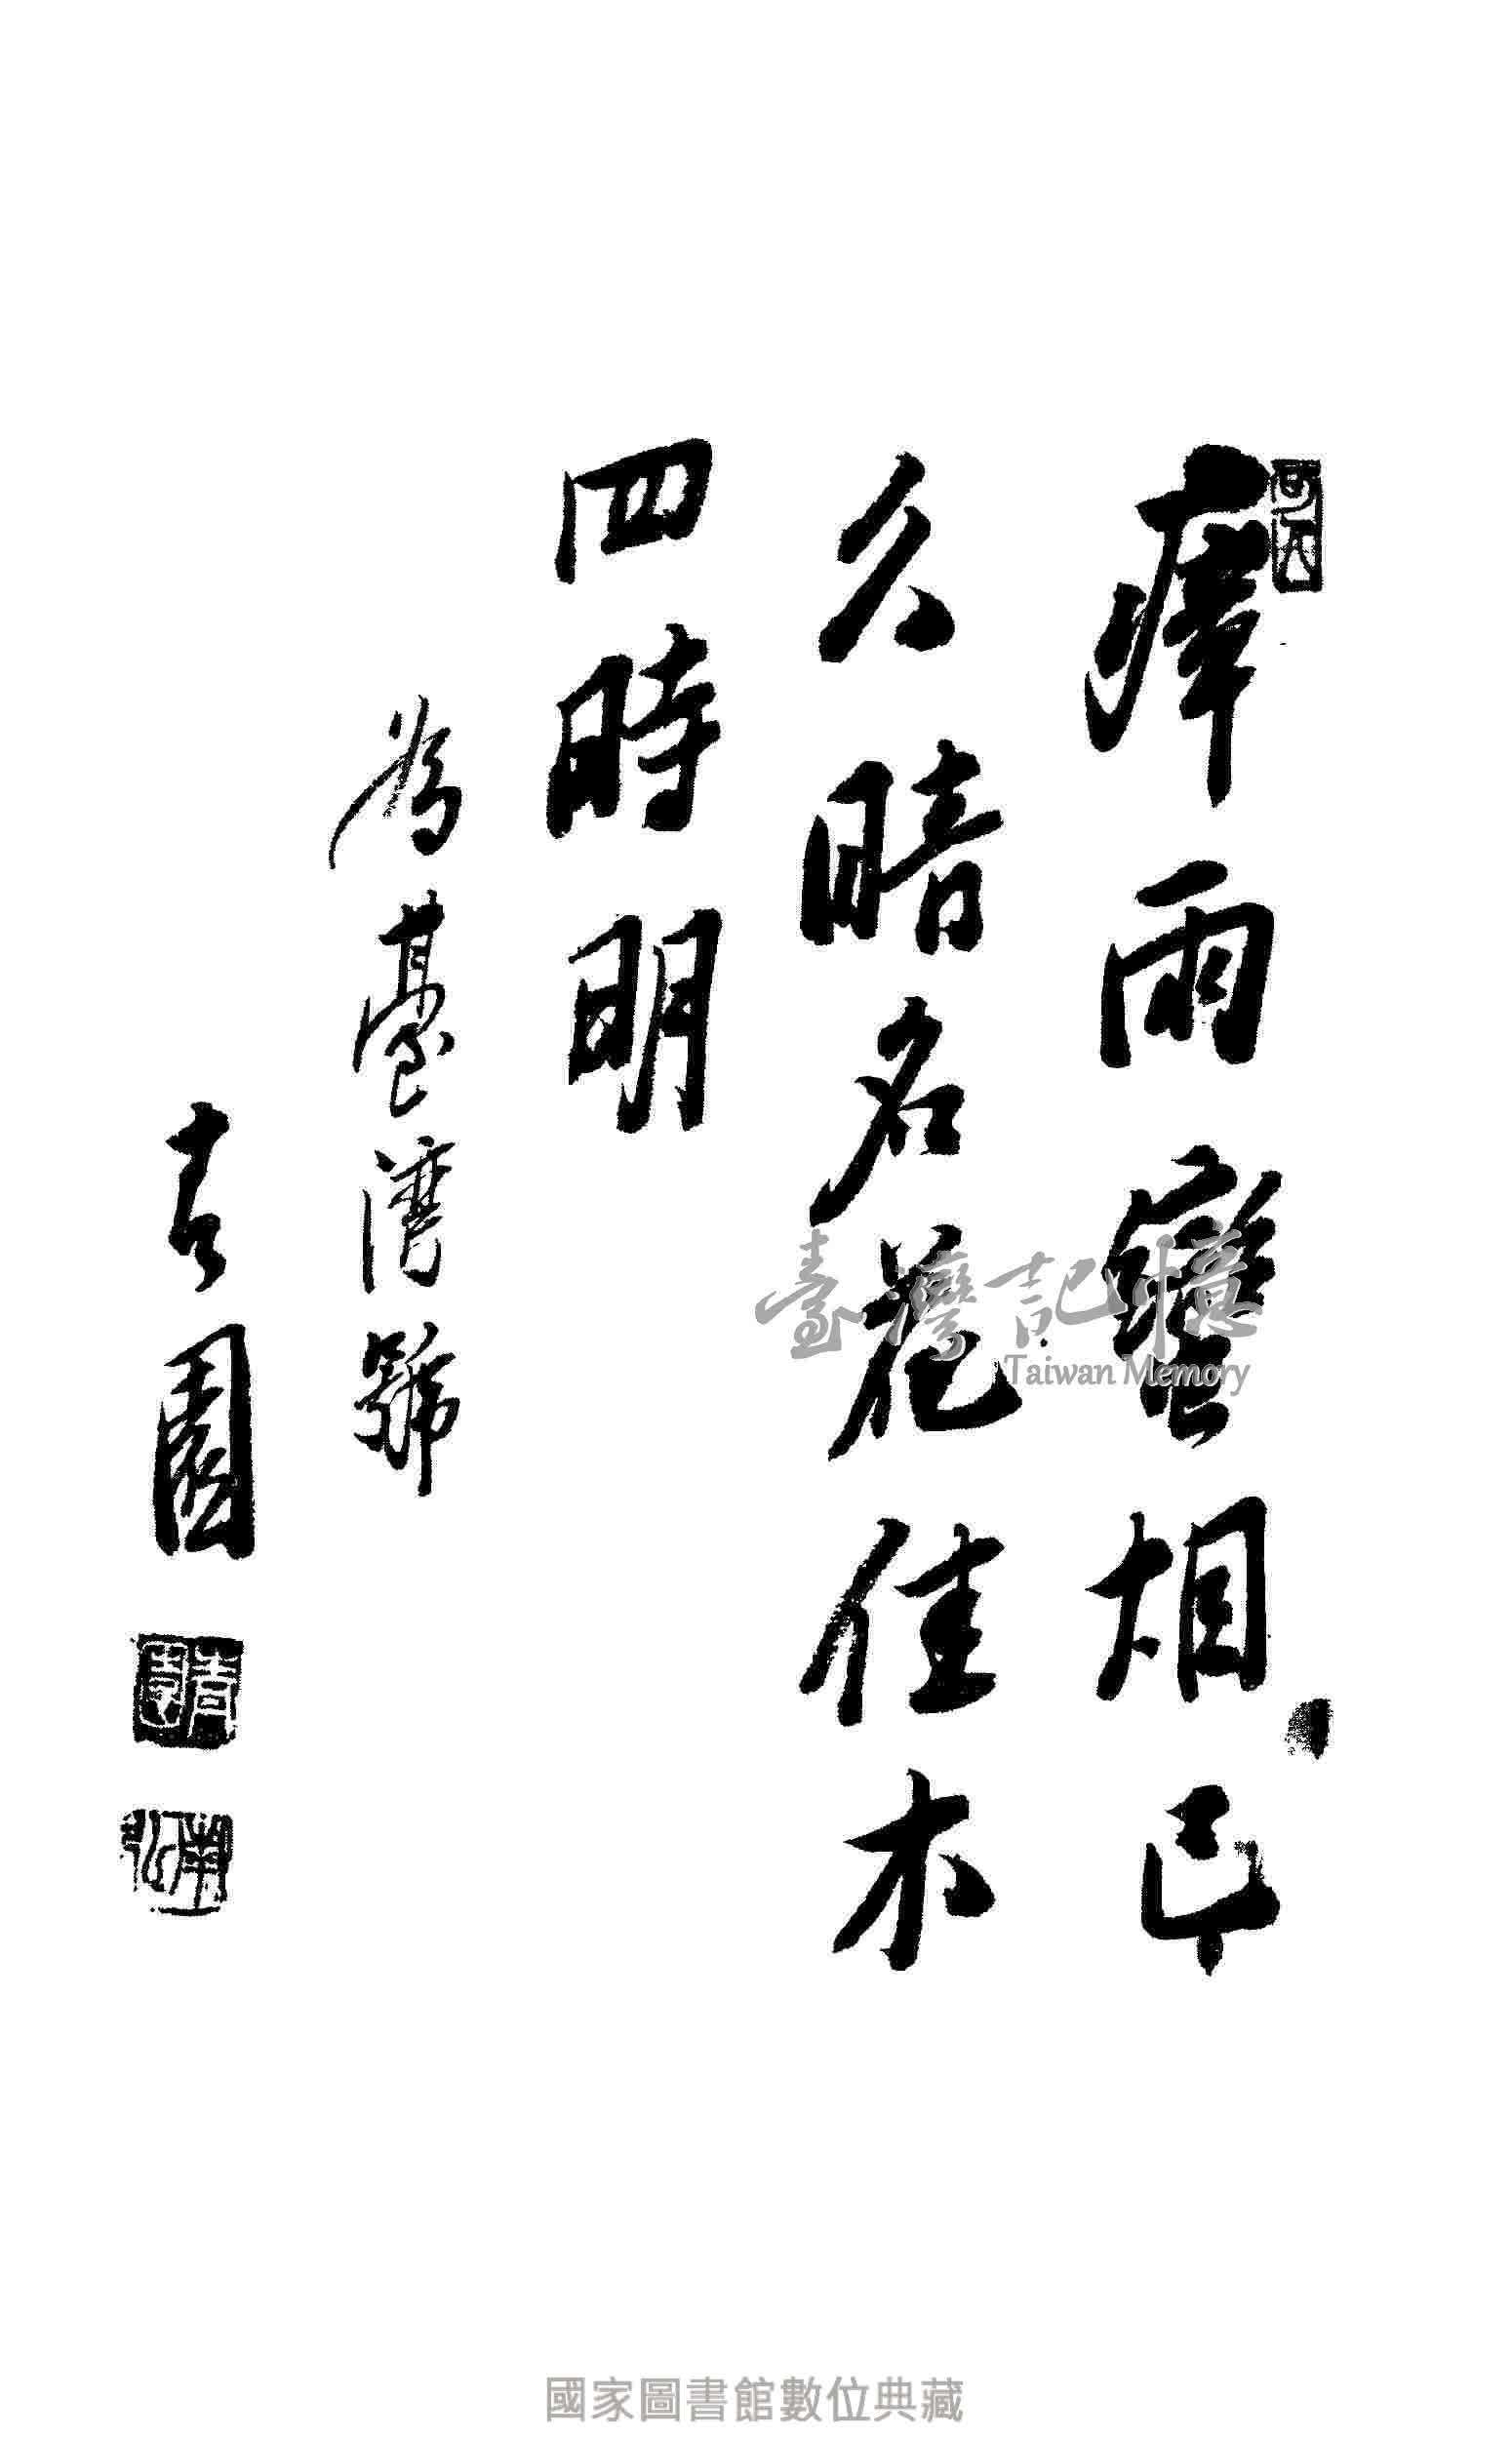 瘴雨蠻烟已
久暗名花佳木
四時明
為臺灣號
杏園
臺灣記憶
Taiwan Memory
國家圖書館數位典藏